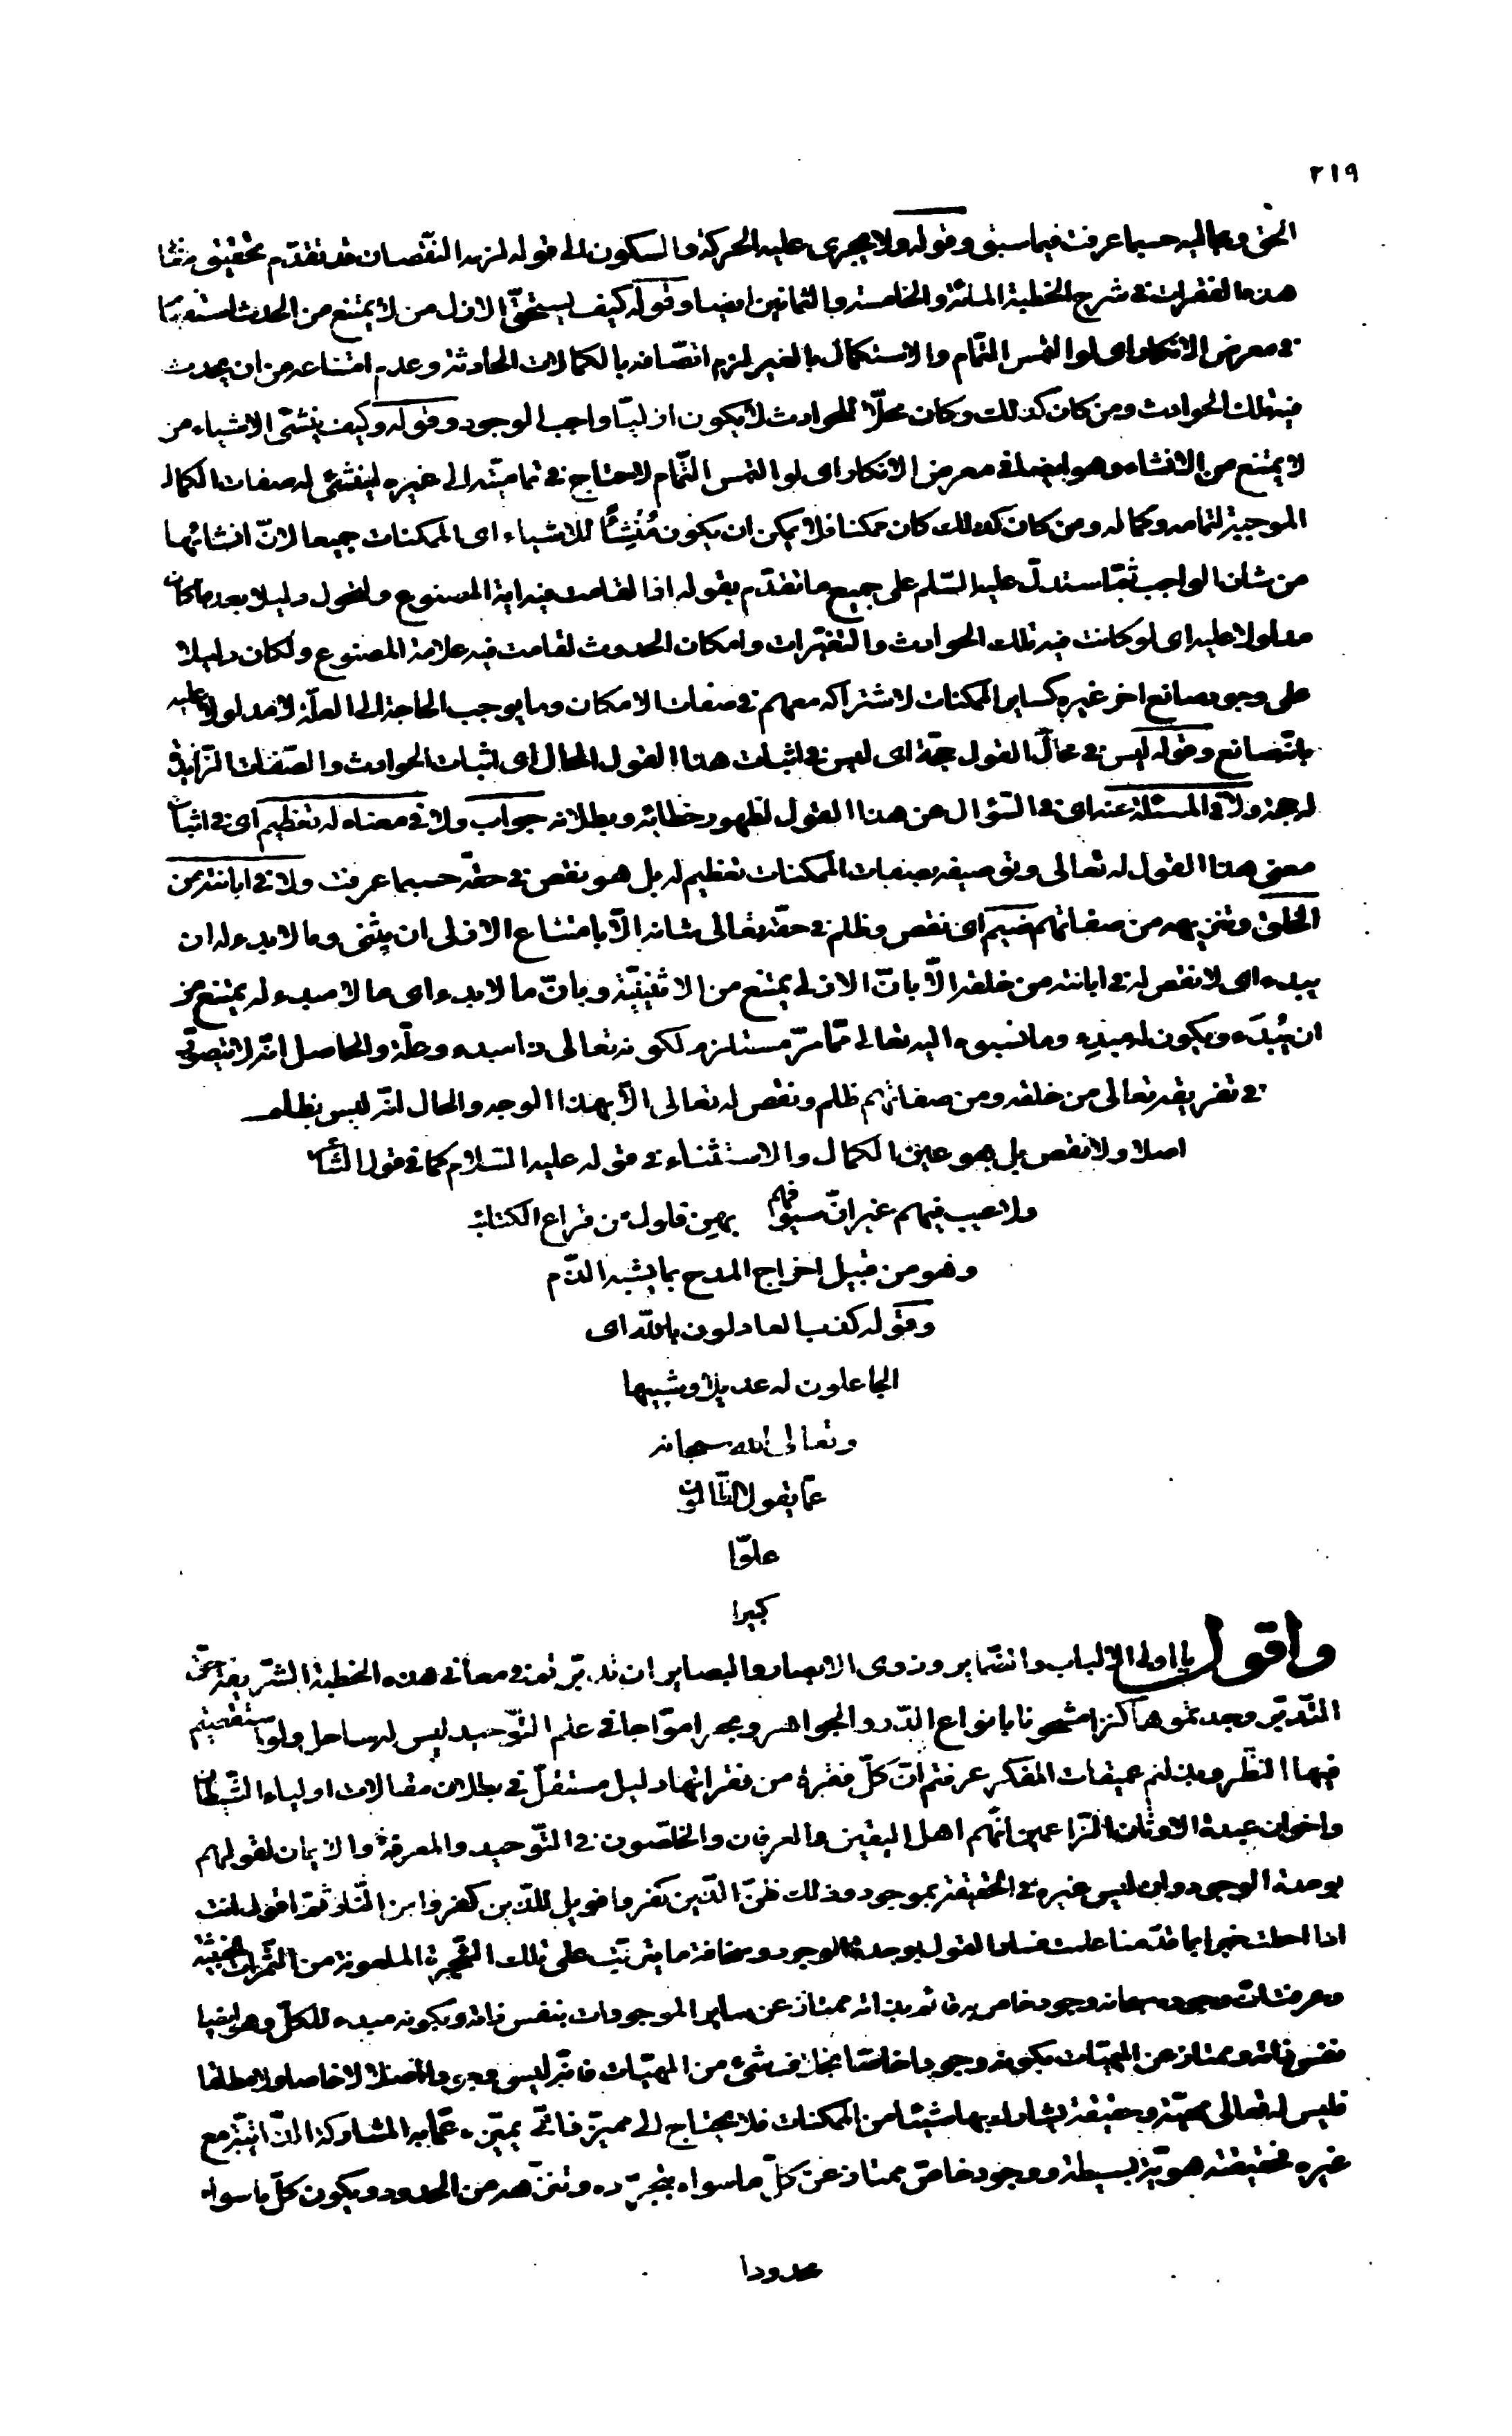 ٢١٩
الحق وتعاليه حسبما عرفت فيما سبق وقوله ولا يجرى عليه الحركة والسكون الى قوله لزمه النّقصان قد تقدّم تحقيق
هذه الفقرات فى شرح الخطبة المائة والخامسة والثمانين ايضا وقوله كيف يستحقّ الازل من لا يمتنع من الحدث استفهام
فى معرض الانكار اى لو التمس التّمام والاستكمال بالغير لزم اتّصافه بالكمالات الحادثة وعدم امتناعه من ان يحدث
فيه تلك الحوادث ومن كان كذلك وكان محلّا للحوادث لا يكون ازليّا واجب الوجود وقوله وكيف ينشئ الاشياء من
لا يمتنع من الانشاء وهو ايضا فى معرض الانكار اى لو التمس التّمام لاحتاج فى تماميّته الى غيره لينشئ له صفات الكمال
الموجبة لتمامه وكماله ومن كان كذلك كان ممكنا فلا يمكن ان يكون مُنْشِئًا للاشياء اى الممكنات جميعا لانّ انشائها
من شان الواجب ثمّ استدلّ عليه السّلم على جميع ما تقدّم بقوله اذا لقامت فيه اية المصنوع ولتحول دليلا بعد ما كان
مدلولا عليه اى لو كانت فيه تلك الحوادث والتغيّرات وامكان الحدوث لقامت فيه علامة المصنوع ولكان دليلا
على وجود صانع اخر غيره كساير الممكنات لاشتراكه معهم فى صفات الامكان وما يوجب الحاجة الى العلّة لا مدلولا عليه
بانّه صانع وقوله ليس فى محالّ القول حجّة اى ليس فى اثبات هذا القول المحال اى اثبات الحوادث والصّفات الزّايدة
له حجة ولا فى المسئلة عنه اى فى السّؤال عن هذا القول لظهور خطائه وبطلانه جواب ولا فى معناه له تعظيم اى فى اثبات
معنى هذا القول له تعالى وتوصيفه بصفات الممكنات تعظيم له بل هو نقص فى حقّه حسبما عرفت ولا فى ابانته من
الخلق وتنزيهه من صفاتهم ضيم اى نقص وظلم فى حقّه تعالى شانه الّا بامتناع الازلى ان يثنى وما لا بدء له ان
يبدء اى لا نقص له فى ابانته من خلقه الّا بانّ الازلى يمتنع من الاثنينيّة وبانّ ما لا بدء اى ما لا مبدء له يمتنع من
ان يُبدَء ويكون له مبدء وما نسبوه اليه تعالى ممّا مرّ مستلزم لكونه تعالى ذا مبدء وعلّة والحاصل انّه لا يتصوّر
فى تفريقه تعالى من خلقه ومن صفاتهم ظلم ونقص له تعالى الّا بهذا الوجه والحال انّه ليس بظلم
اصلا ولا نقص بل هو عين الكمال والاستثناء فى قوله عليه السّلام كما فى قول الشّاعر
ولا عيب فيهم غير انّ سيوفهم بهن فلول من قراع الكتائب
وهو من قبيل اخراج المدح بما يشبه الذّم
وقوله كذب العادلون بالله اى
الجاعلون له عديلا وشبيها
وتعالى الله سبحانه
عمّا يقول الظّالمون
علوّا
كبيرا
واقول يا اولى الالباب والضّماير وذوى الابصار والبصاير ان تدبّرتم فى معانى هذه الخطبة الشّريفة حقّ
التّدبّر وجدتموها كنزا مشحونا بانواع الدّرر والجواهر وبحرا موّاجا فى علم التّوحيد ليس له ساحل ولو استقصيتم
فيها النّظر وبذلتم عميقات الفكر عرفتم انّ كلّ فقرة من فقراتها دليل مستقلّ فى بطلان مقالات اولياء الشّيطان
واخوان عبدة الاوثان الزّاعمين انّهم اهل اليقين والعرفان والمخلصون فى التّوحيد والمعرفة والايمان لقولهم
بوحدة الوجود وان ليس غيره فى الحقيقة بموجود وذلك ظنّ الّذين كفروا فويل للّذين كفروا من النّار ثمّ اقول انت
اذا احطت خبرا بما قدّمنا علمت فساد القول بوحدة الوجود وسخافة ما يترتّب على تلك الشّجرة الملعونة من الثّمرات الخبيثة
وعرفت انّ وجوده سبحانه وجود خاص به قائم بذاته ممتاز عن ساير الموجودات بنفس ذاته وبكونه مبدء للكلّ وهو ايضا
نفس ذاته وممتاز عن المهيّات بكونه وجودا خاصّا بخلاف شىء من المهيّات فانّه ليس وجودا اصلا لا خاصا ولا مطلقا
فليس له تعالى مهيّة وحقيقة يشارك بها شيئا من الممكنات فلا يحتاج الى مميّز ذاتى يميّزه عمّا به المشاركة الذّاتيّة مع
غيره فحقيقته هويّة بسيطة ووجود خاصّ ممتاز عن كلّ ما سواه بتجرّده وتنزّهه من الحدود ويكون كلّ ما سواه
محدودا